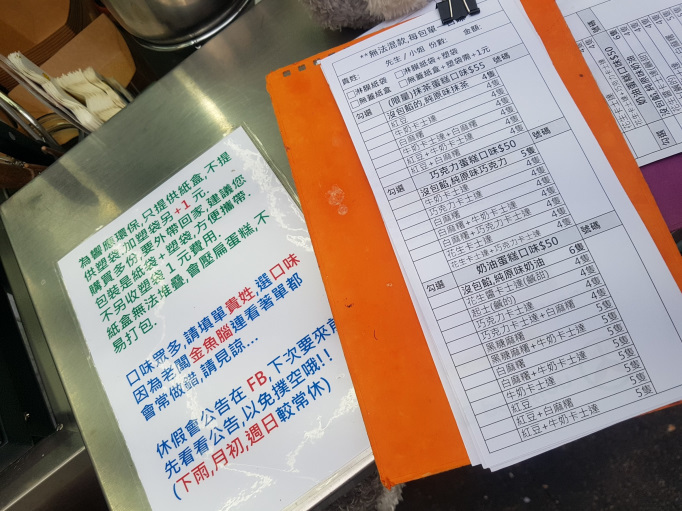 為響應環保,只提供紙盒,不提
供塑袋,加塑袋另+1元.
購買多份,要外帶回家,建議您
包裝是紙袋+塑袋,方便攜帶.
不另收塑袋1元費用.
紙盒無法堆疊,會壓扁蛋糕,不
易打包.
口味眾多,請填單貴姓,選口味
因為老闆金魚腦連看著單都
會常做錯,請見諒...
休假會公告在FB,下次要來前
先看看公告,以免撲空哦!!
(下雨,月初,週日較常休)
**無法混款,每包單
貴姓: 先生/小姐 份數: 金額:
□淋膜紙袋 □淋膜紙袋+塑袋
□無蓋紙盒 □無蓋紙盒+塑袋需+1元
勾選 (限量)抹茶蛋糕口味$55 號碼
沒包餡的,純原味抹茶 4隻
紅豆 4隻
牛奶卡士達 4隻
白麻糬 4隻
牛奶卡士達+白麻糬 4隻
紅豆+牛奶卡士達 4隻
紅豆+白麻糬 4隻
勾選 巧克力蛋糕口味$50 號碼
沒包餡,純原味巧克力 5隻
牛奶卡士達 4隻
巧克力卡士達 4隻
白麻糬 4隻
白麻糬+牛奶卡士達 4隻
白麻糬+巧克力卡士達 4隻
花生+牛奶卡士達 4隻
花生卡士達+巧克力卡士達 4隻
勾選 奶油蛋糕口味$50 號碼
沒包餡,純原味奶油 6隻
花生醬卡士達(鹹甜) 4隻
起士(鹹的) 4隻
巧克力卡士達 4隻
巧克力卡士達+白麻糬 5隻
黑糖麻糬 5隻
黑糖麻糬+牛奶卡士達 5隻
白麻糬 5隻
白麻糬+牛奶卡士達 5隻
牛奶卡士達 5隻
紅豆 5隻
紅豆+白麻糬 5隻
紅豆+牛奶卡士達 5隻